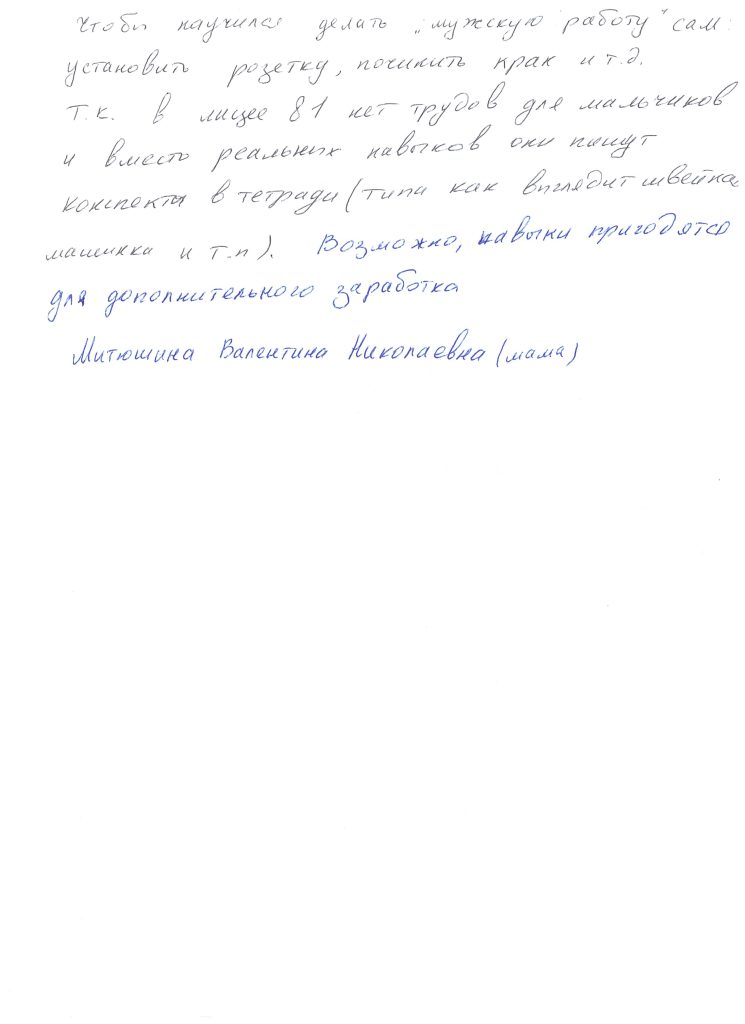 Чтобы научился делать „мужскую работу" сам:
установить розетку, починить кран и т.д.
Т.к. в лицее 81 нет трудов для мальчиков
и вместо реальных навыков они пишут
конспекты в тетради (типа как выглядит швейная
машинка и т.п). Возможно, навыки пригодятся
для дополнительного заработка
Митюшина Валентина Николаевна (мама)